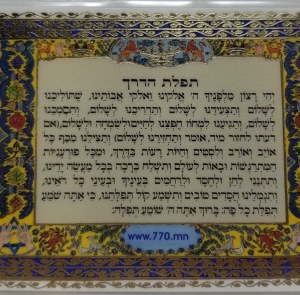 תפלת הדרך
יהי רצון מלפניך ה׳ אלקינו ואלקי אבותינו, שתוליכנו
לשלום ותצעידנו לשלום ותדריכנו לשלום, ותסמכנו
לשלום, ותגיענו למחוז חפצנו לחיים ולשמחה ולשלום, (ואם
דעתו לחזור מיד, אומר ותחזירנו לשלום) ותצילנו מכף כל
אויב ואורב ולסטים וחיות רעות בדרך, ומכל פורעניות
המתרגשות ובאות לעולם ותשלח ברכה בכל מעשה ידינו,
ותתנני לחן ולחסד ולרחמים בעיניך ובעיני כל רואינו,
ותגמלנו חסדים טובים ותשמע קול תפלתנו, כי אתה שומע
תפלת כל פה: ברוך אתה ה׳ שומע תפלה:
www.770.mn